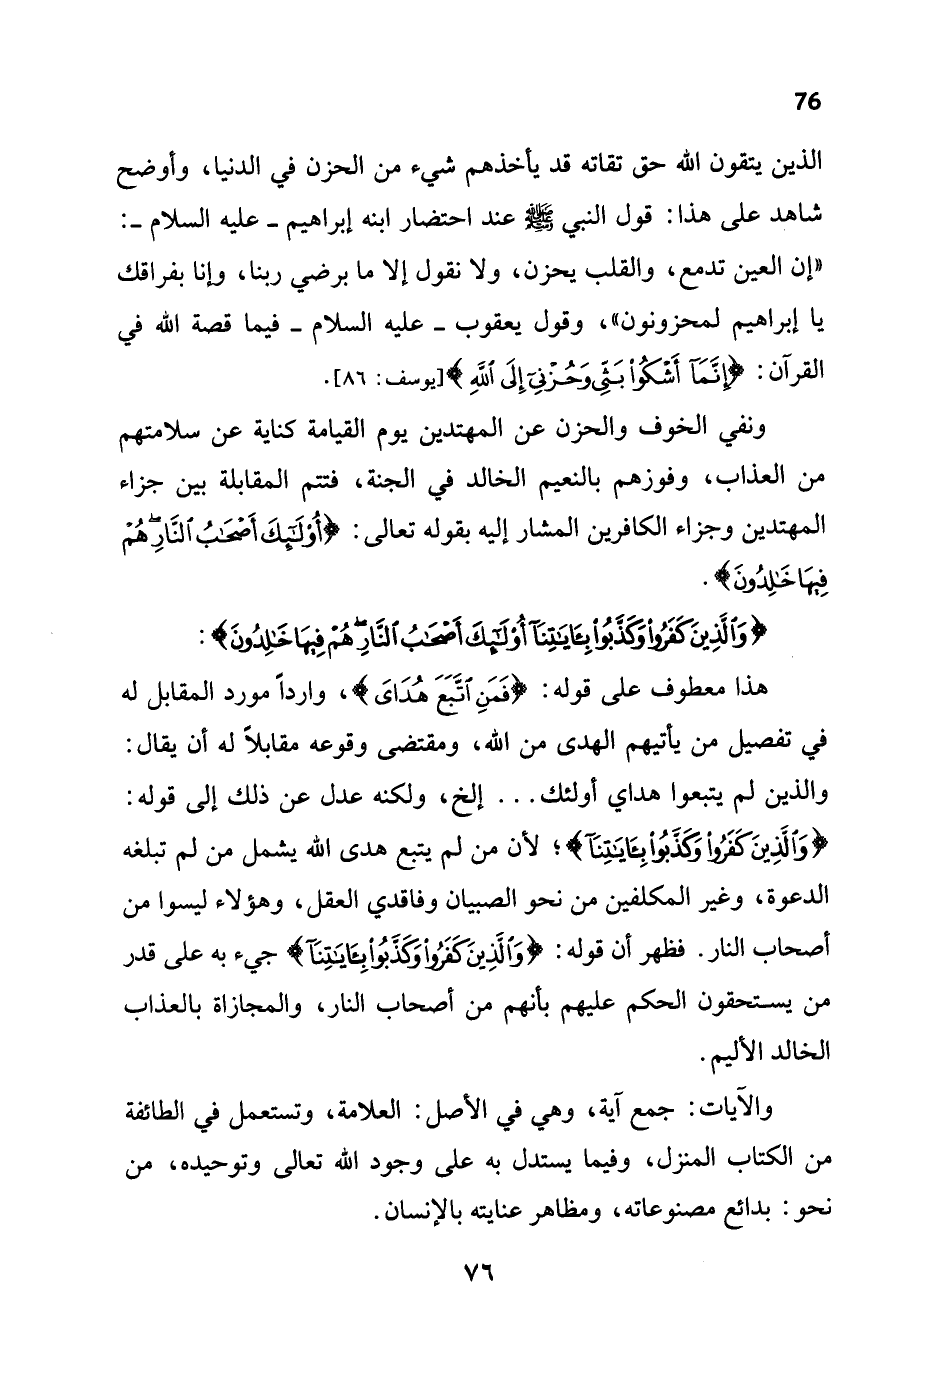 76
الذين يتقون الله حق تقاته قد يأخذهم شيء من الحزن في الدنيا، وأوضح
شاهد على هذا: قول النبي ﷺ عند احتضار ابنه إبراهيم ـ عليه السلام ـ:
«إن العين تدمع، والقلب يحزن، ولا نقول إلا ما يرضي ربنا، وإنا بفراقك
يا إبراهيم لمحزونون»، وقول يعقوب ـ عليه السلام ـ فيما قصة الله في
القرآن: ﴿إِنَّمَآ أَشْكُواْ بَثِّي وَحُزْنِيٓ إِلَى ٱللَّهِ﴾ [يوسف: ٨٦].
ونفي الخوف والحزن عن المهتدين يوم القيامة كناية عن سلامتهم
من العذاب، وفوزهم بالنعيم الخالد في الجنة، فتتم المقابلة بين جزاء
المهتدين وجزاء الكافرين المشار إليه بقوله تعالى: ﴿أُوْلَٰٓئِكَ أَصْحَٰبُ ٱلنَّارِۖ هُمْ
فِيهَا خَٰلِدُونَ﴾.
﴿وَٱلَّذِينَ كَفَرُواْ وَكَذَّبُواْ بِـَٔايَٰتِنَآ أُوْلَٰٓئِكَ أَصْحَٰبُ ٱلنَّارِۖ هُمْ فِيهَا خَٰلِدُونَ﴾:
هذا معطوف على قوله: ﴿فَمَنِ ٱتَّبَعَ هُدَايَ﴾، وارداً مورد المقابل له
في تفصيل من يأتيهم الهدى من الله، ومقتضى وقوعه مقابلاً له أن يقال:
والذين لم يتبعوا هداي أولئك... إلخ، ولكنه عدل عن ذلك إلى قوله:
﴿وَٱلَّذِينَ كَفَرُواْ وَكَذَّبُواْ بِـَٔايَٰتِنَآ﴾؛ لأن من لم يتبع هدى الله يشمل من لم تبلغه
الدعوة، وغير المكلفين من نحو الصبيان وفاقدي العقل، وهؤلاء ليسوا من
أصحاب النار. فظهر أن قوله: ﴿وَٱلَّذِينَ كَفَرُواْ وَكَذَّبُواْ بِـَٔايَٰتِنَآ﴾ جيء به على قدر
من يستحقون الحكم عليهم بأنهم من أصحاب النار، والمجازاة بالعذاب
الخالد الأليم.
والآيات: جمع آية، وهي في الأصل: العلامة، وتستعمل في الطائفة
من الكتاب المنزل، وفيما يستدل به على وجود الله تعالى وتوحيده، من
نحو: بدائع مصنوعاته، ومظاهر عنايته بالإنسان.
٧٦